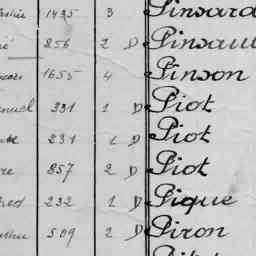 1495 3 Pinsard
856 2 D Pinsault
1655 4 Pinson
331 1 D Piot
231 1 D Piot
857 2 D Piot
232 1 D Pique
509 2 D Piron